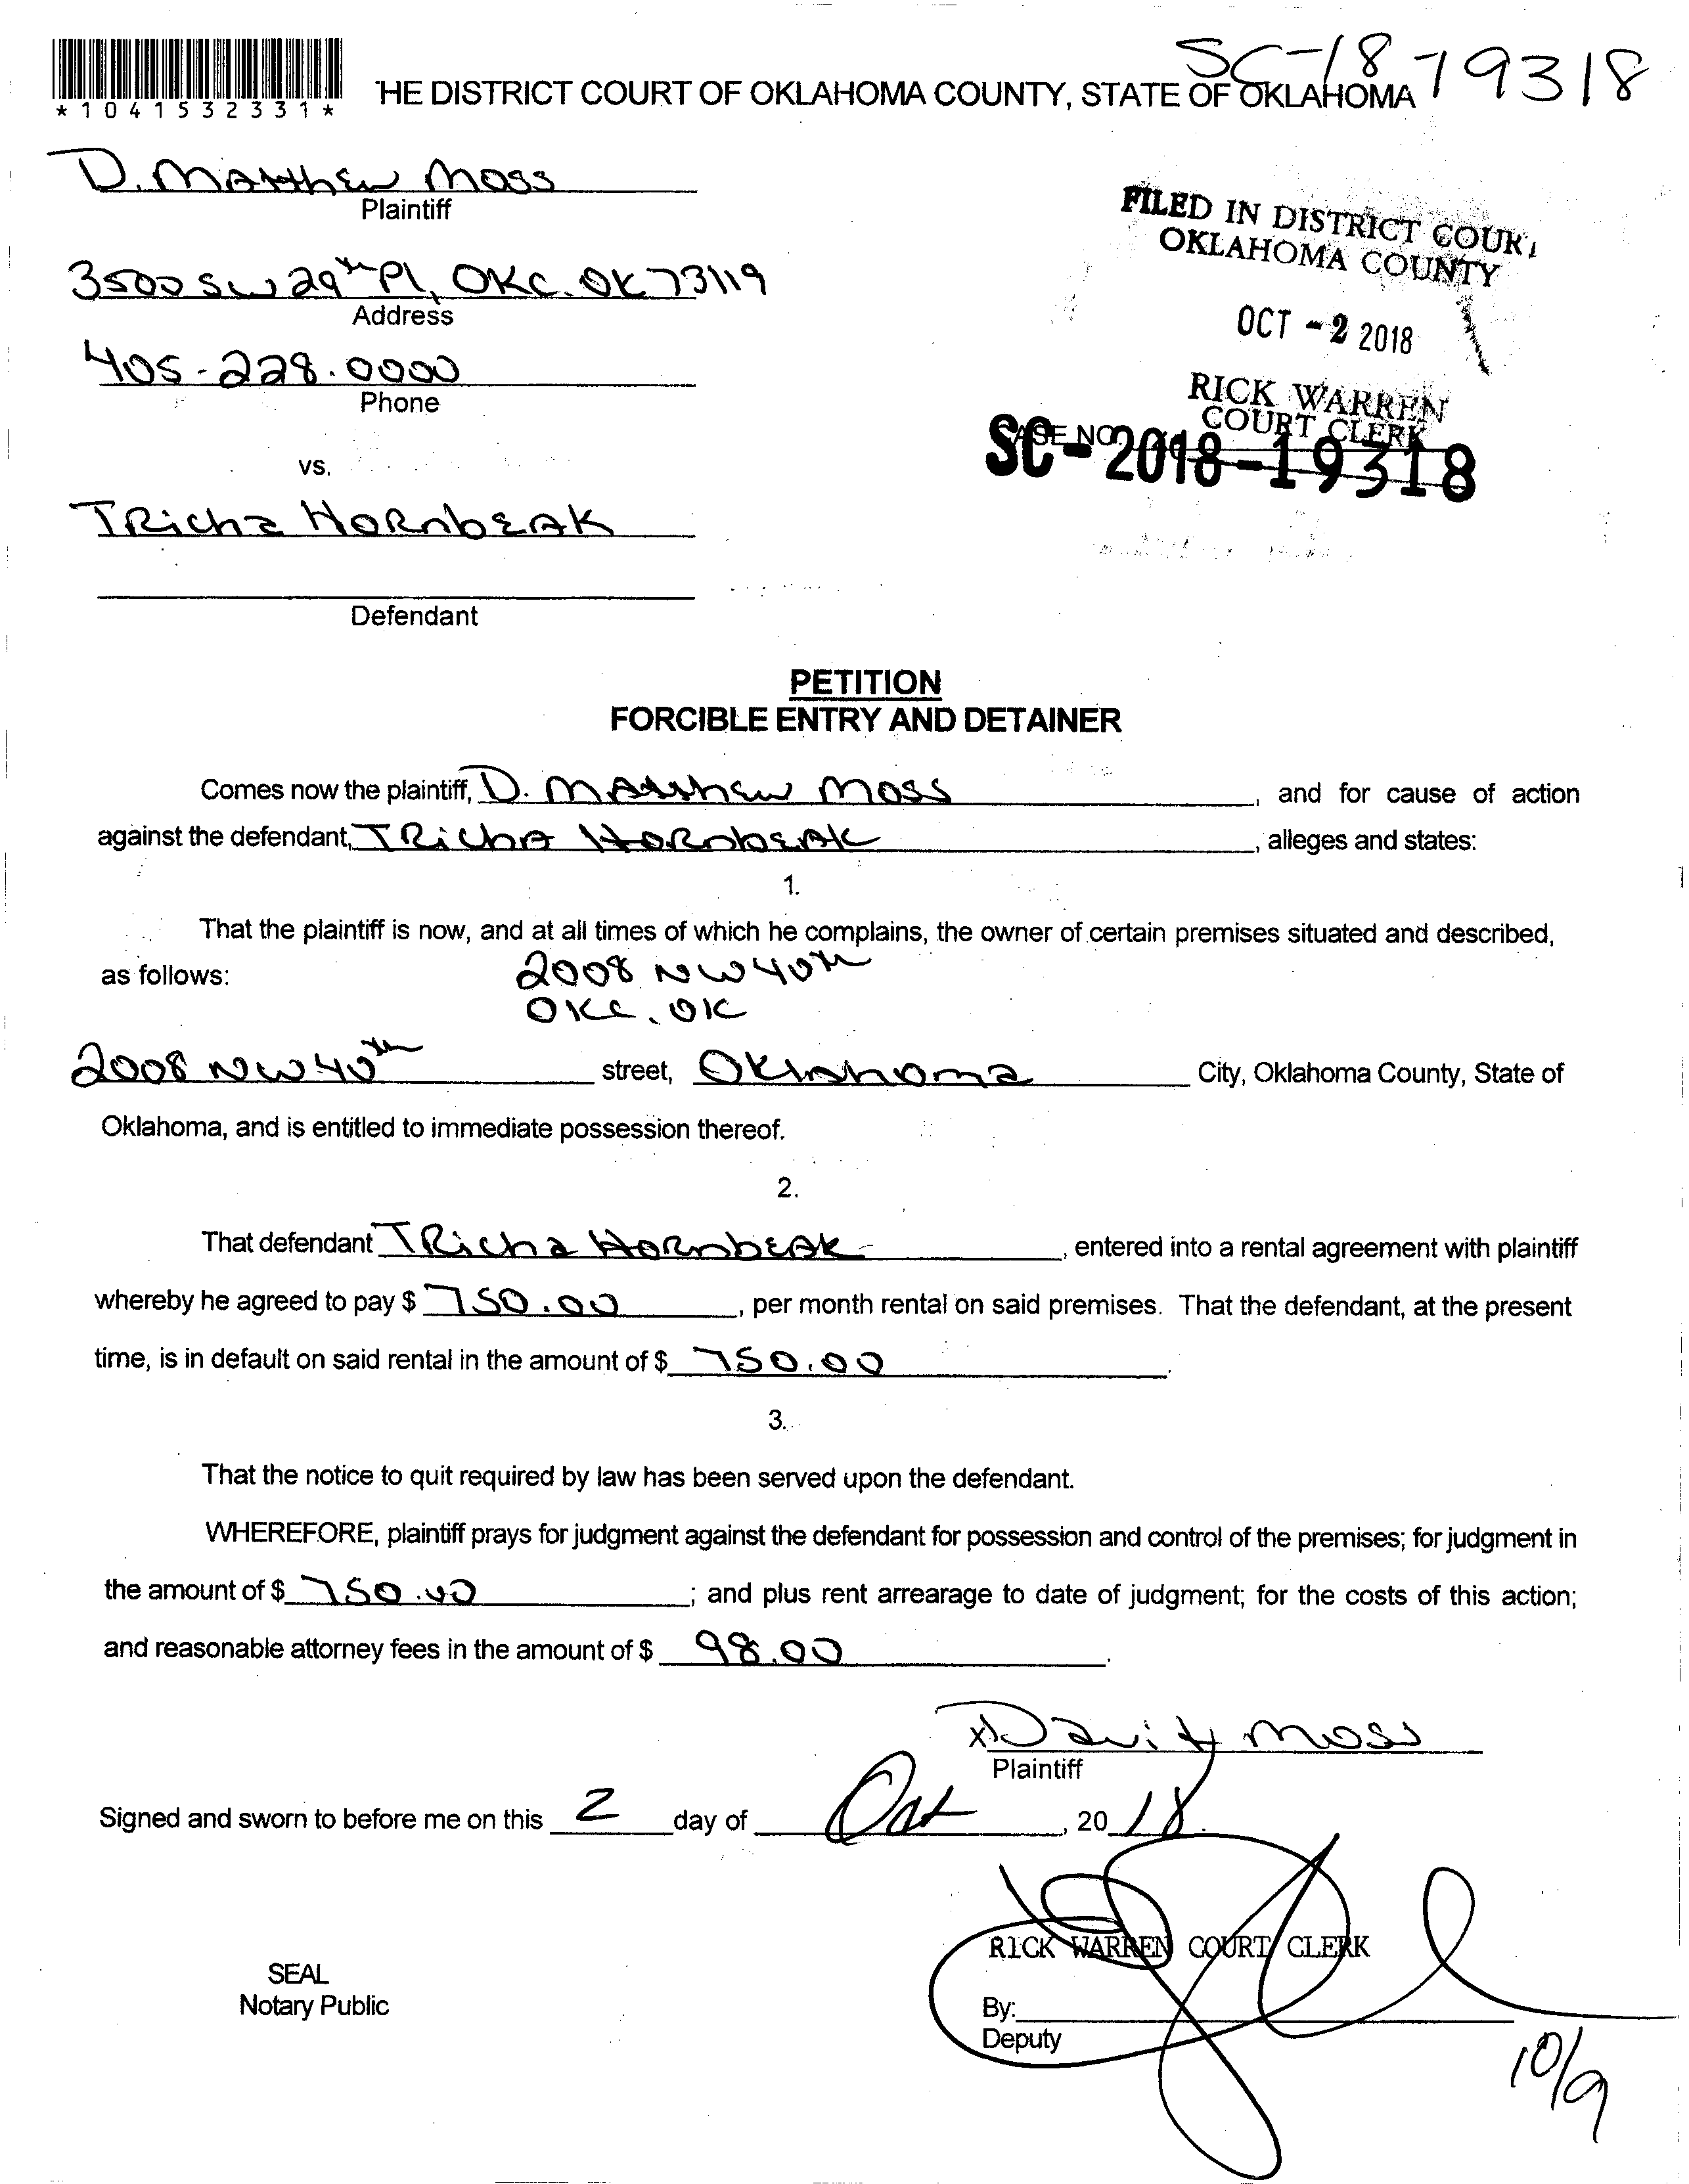 SC-18-19318
*1041532331*
THE DISTRICT COURT OF OKLAHOMA COUNTY, STATE OF OKLAHOMA
D. Matthew Moss
Plaintiff
FILED IN DISTRICT COURT
OKLAHOMA COUNTY
3500 SW 29th Pl, OKC. OK 73119
Address
OCT - 2 2018
405-228.0000
Phone
RICK WARREN
COURT CLERK
CASE NO.
SC-2018-19318
vs.
Tricha Hornbeak
Defendant
PETITION
FORCIBLE ENTRY AND DETAINER
Comes now the plaintiff, D. Matthew Moss, and for cause of action
against the defendant, Tricha Hornbeak, alleges and states:
1.
That the plaintiff is now, and at all times of which he complains, the owner of certain premises situated and described,
as follows: 2008 NW 40th
OKC. OK
2008 NW 40th street, Oklahoma City, Oklahoma County, State of
Oklahoma, and is entitled to immediate possession thereof.
2.
That defendant Tricha Hornbeak, entered into a rental agreement with plaintiff
whereby he agreed to pay $ 750.00, per month rental on said premises. That the defendant, at the present
time, is in default on said rental in the amount of $ 750.00.
3.
That the notice to quit required by law has been served upon the defendant.
WHEREFORE, plaintiff prays for judgment against the defendant for possession and control of the premises; for judgment in
the amount of $ 750.00; and plus rent arrearage to date of judgment; for the costs of this action;
and reasonable attorney fees in the amount of $ 98.00.
x David Moss
Plaintiff
Signed and sworn to before me on this 2 day of Oct, 20 18.
RICK WARREN COURT CLERK
SEAL
Notary Public
By:
Deputy
10/9